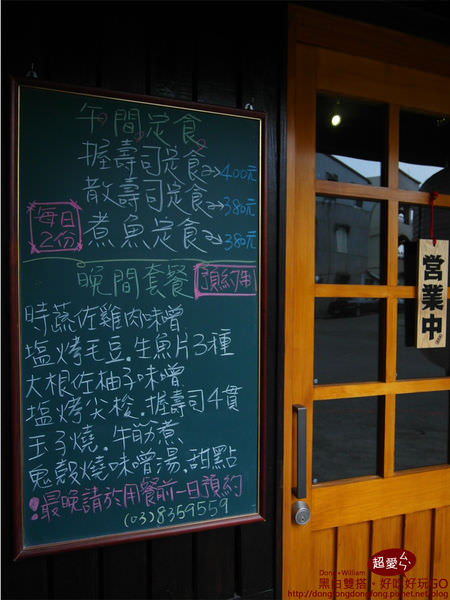 午間定食
握壽司定食→400元
散壽司定食→380元
每日2份
煮魚定食→380元
晚間套餐 預約制
時蔬佐雞肉味噌
塩烤毛豆.生魚片3種
大根佐柚子味噌
塩烤尖梭.握壽司4貫
玉子燒.牛筋煮
鬼殼燒.味噌湯.甜點
!最晚請於用餐前一日預約
(03)8359559
営業中
超愛ㄣㄣ
Dong+William
黑白雙搭。好吃好玩GO
http://dongdongdongdong.pixnet.net/blog